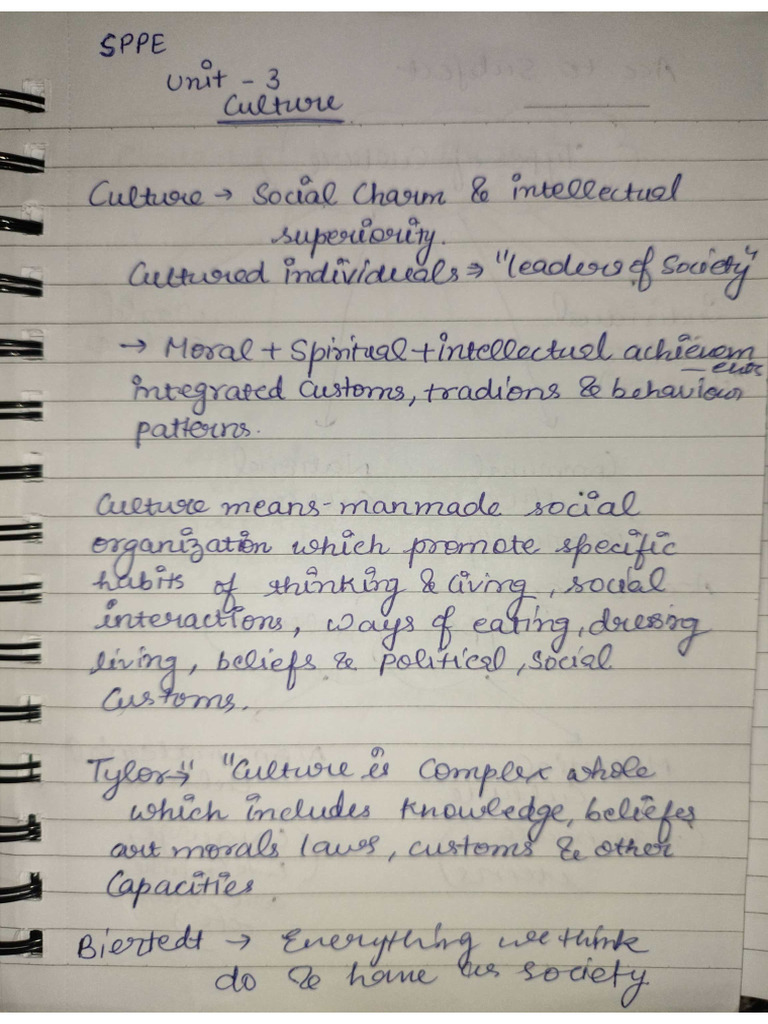 SPPE
Unit - 3
Culture
Culture → Social Charm & intellectual
superiority.
Cultured individuals ⇒ "leaders of Society"
→ Moral + Spiritual + intellectual achievem
– ent
integrated Customs, tradions & behaviour
patterns.
Culture means - manmade social
organization which promote specific
habits of thinking & living, social
interactions, ways of eating, dressing
living, beliefs & political, social
Customs.
Tylor →" "Culture is Complex whole
which includes Knowledge, beliefes
art morals laws, customs & other
Capacities
Biertedt → Everything we think
do & have as society